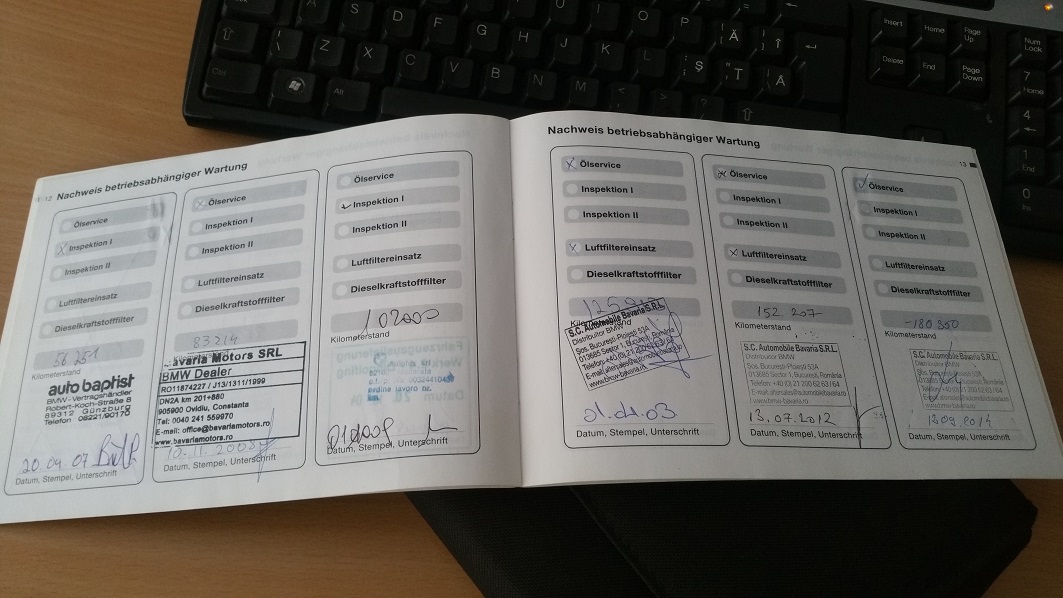 12 Nachweis betriebsabhängiger Wartung
Ölservice
Inspektion I
Inspektion II
Luftfiltereinsatz
Dieselkraftstofffilter
56 251
Kilometerstand
auto baptist
BMW-Vertragshändler
Robert-Koch-Straße 8
89312 Günzburg
Telefon 08221/90170
20.09.07
Datum, Stempel, Unterschrift
Ölservice
Inspektion I
Inspektion II
Luftfiltereinsatz
Dieselkraftstofffilter
83214
Kilometerstand
Bavaria Motors SRL
BMW Dealer
RO11874227 / J13/1311/1999
DN2A km 201+880
905900 Ovidiu, Constanta
Tel: 0040 241 559970
E-mail: office@bavariamotors.ro
www.bavariamotors.ro
Datum, Stempel, Unterschrift
Ölservice
Inspektion I
Inspektion II
Luftfiltereinsatz
Dieselkraftstofffilter
102000
Kilometerstand
ordine lavoro nr.
Datum, Stempel, Unterschrift
Nachweis betriebsabhängiger Wartung 13
Ölservice
Inspektion I
Inspektion II
Luftfiltereinsatz
Dieselkraftstofffilter
Kilometerstand
S.C. Automobile Bavaria S.R.L.
Distribuitor BMW
Sos. Bucuresti-Ploiesti 53A
013685 Sector 1, Bucuresti, România
www.bmw-bavaria.ro
Datum, Stempel, Unterschrift
Ölservice
Inspektion I
Inspektion II
Luftfiltereinsatz
Dieselkraftstofffilter
152 207
Kilometerstand
S.C. Automobile Bavaria S.R.L.
Distribuitor BMW
Sos. Bucuresti-Ploiesti 53A
013685 Sector 1, Bucuresti, România
Telefon: +40 (0) 21 200 62 63 / 64
13.07.2012
Datum, Stempel, Unterschrift
Ölservice
Inspektion I
Inspektion II
Luftfiltereinsatz
Dieselkraftstofffilter
180 350
Kilometerstand
S.C. Automobile Bavaria S.R.L.
Datum, Stempel, Unterschrift
A S D F G H J K L
Z X C V B N M
I O P Ă Î
Ș Ț Â
Ctrl
Alt
Insert Home Page Up
Delete End Page Down
Num Lock
7 Home
4
1 End
0 Ins